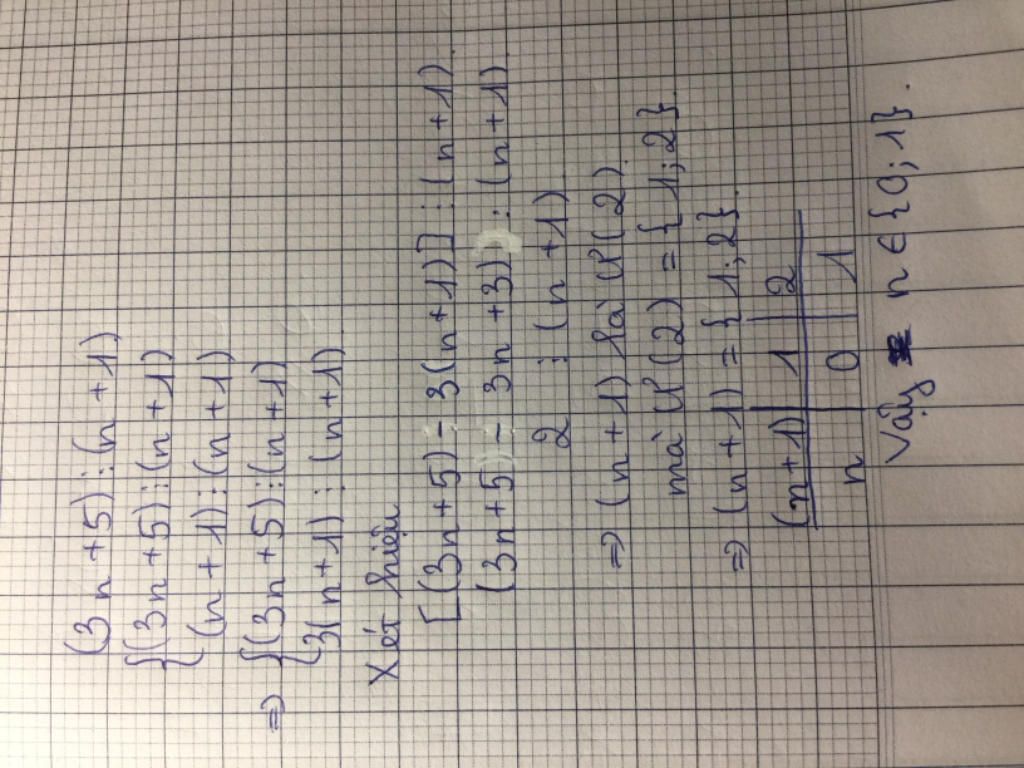 (3n+5)⋮(n+1)
{(3n+5)⋮(n+1)
(n+1)⋮(n+1)
⇒ {(3n+5)⋮(n+1)
3(n+1)⋮(n+1)
Xét hiệu
[(3n+5)-3(n+1)]⋮(n+1)
(3n+5)-3n+3)⋮(n+1)
2⋮(n+1)
⇒ (n+1) là Ư(2)
mà Ư(2)={1;2}.
⇒ (n+1)={1;2}.
(n+1) 1 2
n 0 1
Vậy n∈{0;1}.